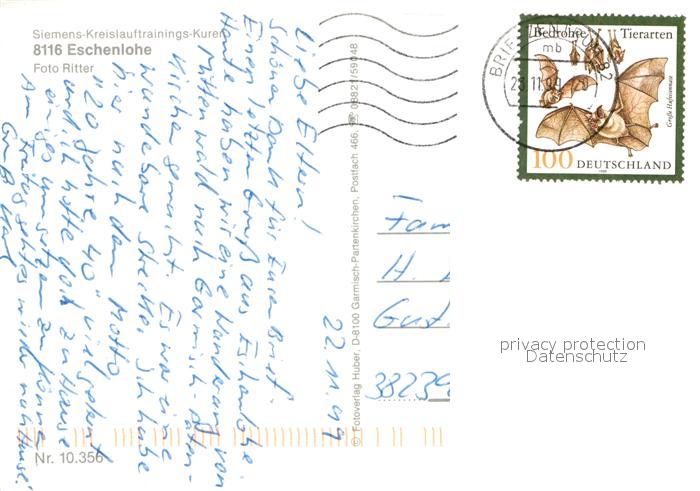 Siemens-Kreislauftrainings-Kuren
8116 Eschenlohe
Foto Ritter
22.11.99
Liebe Eltern!
Schönen Dank für Euren Brief.
Einen letzten Gruß aus Eschenlohe
Heute haben wir eine Wanderung von
Mittenwald nach Garmisch-Parten-
kirchen gemacht. Es war eine
wunderbare Strecke. Ich habe
hier nach dem Motto
"20 Jahre 40" viel gelernt
und ich hoffe das zu Hause
einiges umsetzen zu können.
Am Freitag geht es wieder nach Hause.
Gruß
Nr. 10.356
© Fotoverlag Huber, D-8100 Garmisch-Partenkirchen, Postfach 466, ☎ 08821/59048
Fam
H.
Gust
38239
BRIEFZENTRUM 82
mb
23.11.99
Bedrohte Tierarten
Große Hufeisennase
100 DEUTSCHLAND
privacy protection
Datenschutz